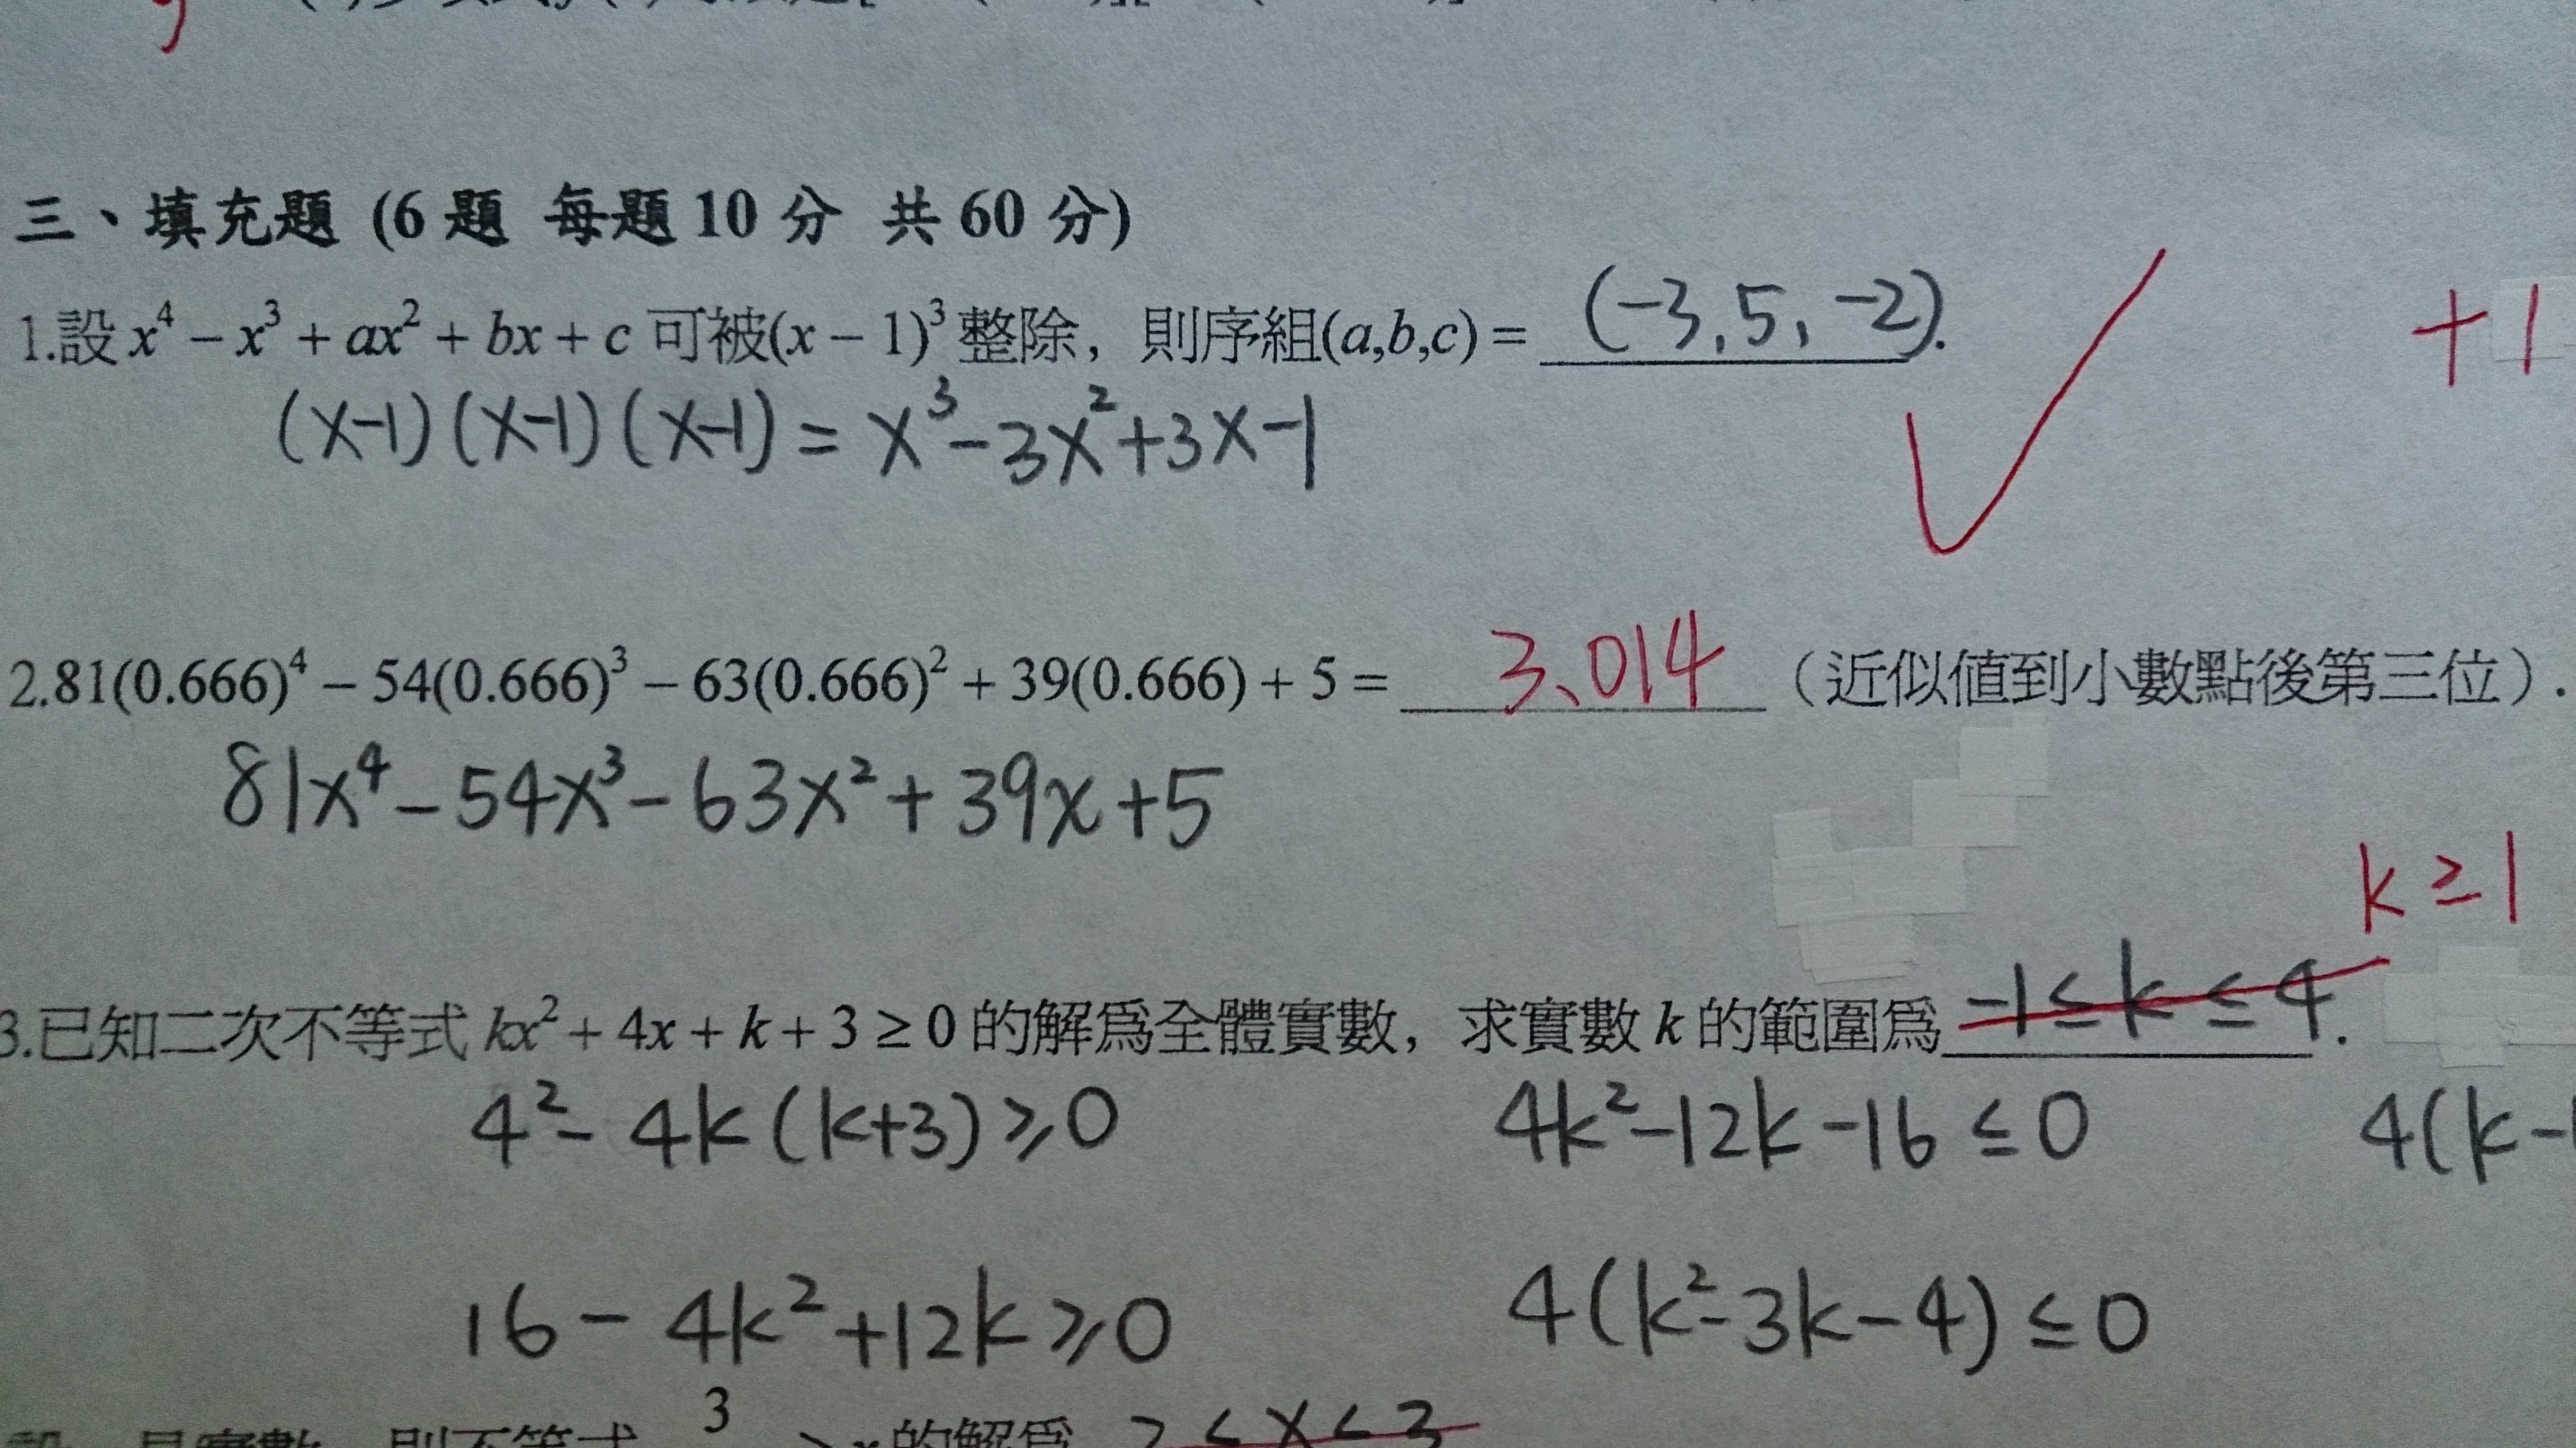 三、填充題 (6 題 每題 10 分 共 60 分)
1.設 x⁴ − x³ + ax² + bx + c 可被(x − 1)³ 整除，則序組(a,b,c) = (-3, 5, -2).
+1
(x-1)(x-1)(x-1) = x³-3x²+3x-1
2.81(0.666)⁴ − 54(0.666)³ − 63(0.666)² + 39(0.666) + 5 = 3.014 （近似值到小數點後第三位）.
81x⁴-54x³-63x²+39x+5
k≥1
3.已知二次不等式 kx² + 4x + k + 3 ≥ 0 的解爲全體實數，求實數 k 的範圍爲 -1≤k≤4.
4²-4k(k+3)≥0
4k²-12k-16≤0
4(k-
16-4k²+12k≥0
4(k²-3k-4)≤0
3
的解爲